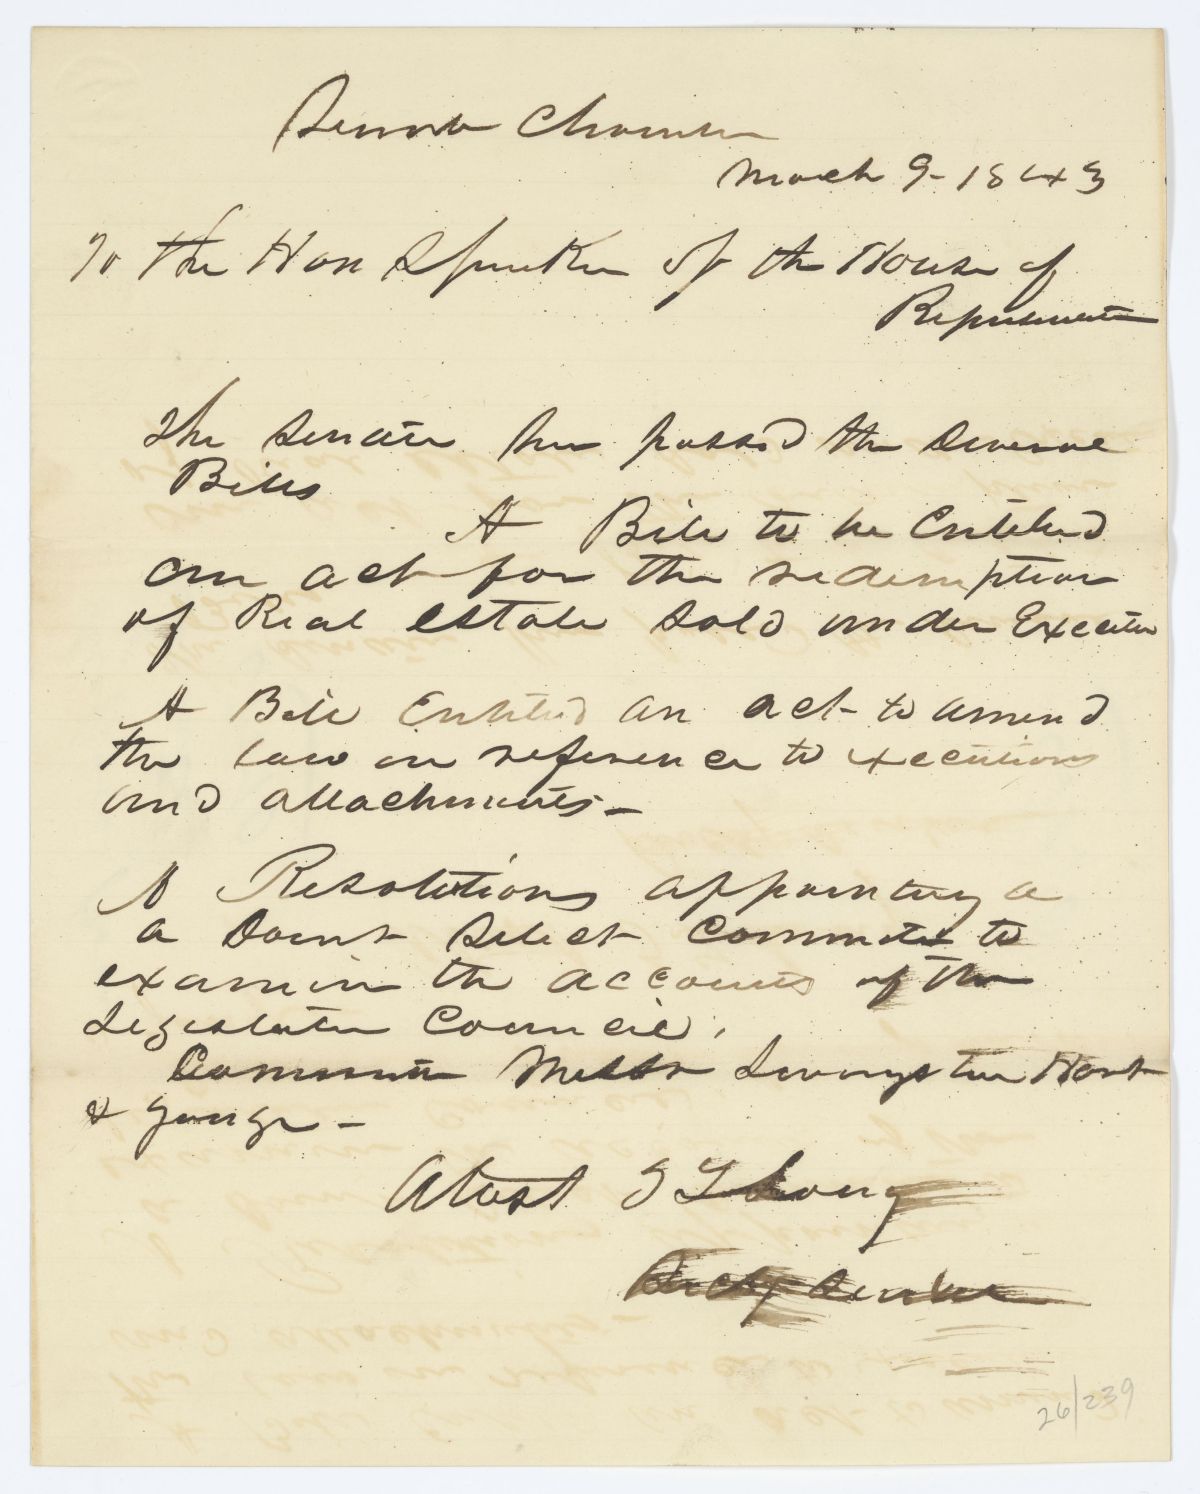 Senate Chamber
March 9 - 1843
To the Hon Speaker of the House of
Representatives
The Senate has passed the several
Bills
A Bill to be Entitled
an act for the redemption
of Real estate sold under Execution
A Bill Entitled an act to amend
the law in reference to executions
and attachments -
A Resolutions appointing a
a Joint Select Committee to
examine the accounts of the
Legislative Council.
Committee Messrs Livingston Hart
& George -
Attest S Long
Secty Senate
26/239